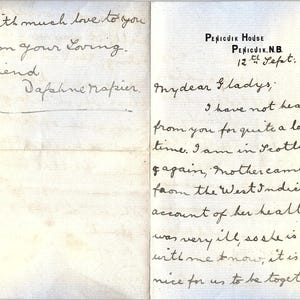 Penicuik House
Penicuik. N.B.
12th Sept.
My dear Gladys,
I have not hea
from you for quite a lo
time. I am in Scotl
again, Mother came
from the West Indie
account of her healt
was very ill, so she is
with me know, it is
nice for us to be toget
ith much love to you
om your Loving.
iend
Daphne Napier